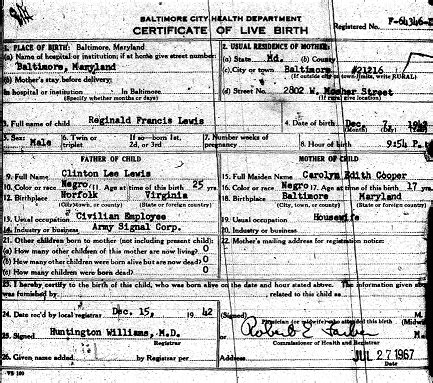 BALTIMORE CITY HEALTH DEPARTMENT
CERTIFICATE OF LIVE BIRTH
Registered No. F-64346-
1. PLACE OF BIRTH: Baltimore, Maryland
(a) Name of hospital or institution; if at home give street number:
Baltimore, Maryland
(b) Mother's stay before delivery:
In hospital or institution In Baltimore
(Specify whether months or days)
2. USUAL RESIDENCE OF MOTHER:
(a) State Md. (b) County
(c) City or town Baltimore #21216
(If outside city or town limits, write RURAL)
(d) Street No. 2802 W. Mosher Street
(If rural give location)
3. Full name of child Reginald Francis Lewis
4. Date of birth Dec. 7, 1942
(Month) (Day) (Year)
5. Sex: Male
6. Twin or triplet
If so—born 1st, 2d, or 3rd
7. Number weeks of pregnancy
8. Hour of birth 9:54 P.
FATHER OF CHILD
9. Full Name Clinton Lee Lewis
10. Color or race Negro 11. Age at time of this birth 25 yrs.
12. Birthplace Norfolk Virginia
(City, town, or county) (State or foreign country)
13. Usual occupation Civilian Employee
14. Industry or business Army Signal Corp.
MOTHER OF CHILD
15. Full Maiden Name Carolyn Edith Cooper
16. Color or race Negro 17. Age at time of this birth 17 yrs.
18. Birthplace Baltimore Maryland
(City, town, or county) (State or foreign country)
19. Usual occupation Housewife
20. Industry or business
21. Other children born to mother (not including present child):
(a) How many other children of this mother are now living? 0
(b) How many other children were born alive but are now dead? 0
(c) How many children were born dead? 0
22. Mother's mailing address for registration notice:
23. I hereby certify to the birth of this child, who was born alive on the date and hour stated above. The information given
was furnished by , related to this child as
24. Date rec'd by local registrar Dec. 15, 1942
25. Signed Huntington Williams, M.D.
Registrar
26. Given name added by Registrar per
(Signed) M.
Physician (or midwife) who attended this birth
Signed
Commissioner of Health and Registrar
Address JUL 27 1967
VS 100